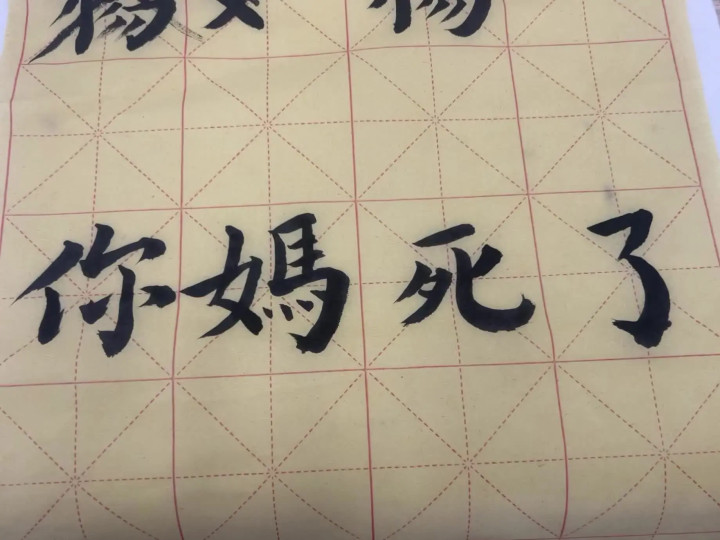 你媽死了